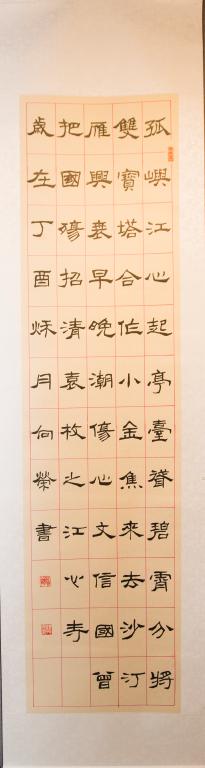 孤嶼江心起亭臺聳碧霄分將
雙寶塔合作小金焦來去沙汀
雁興衰早晚潮傷心文信國曾
把國殤招清袁枚之江心寺
歲在丁酉秋月向榮書